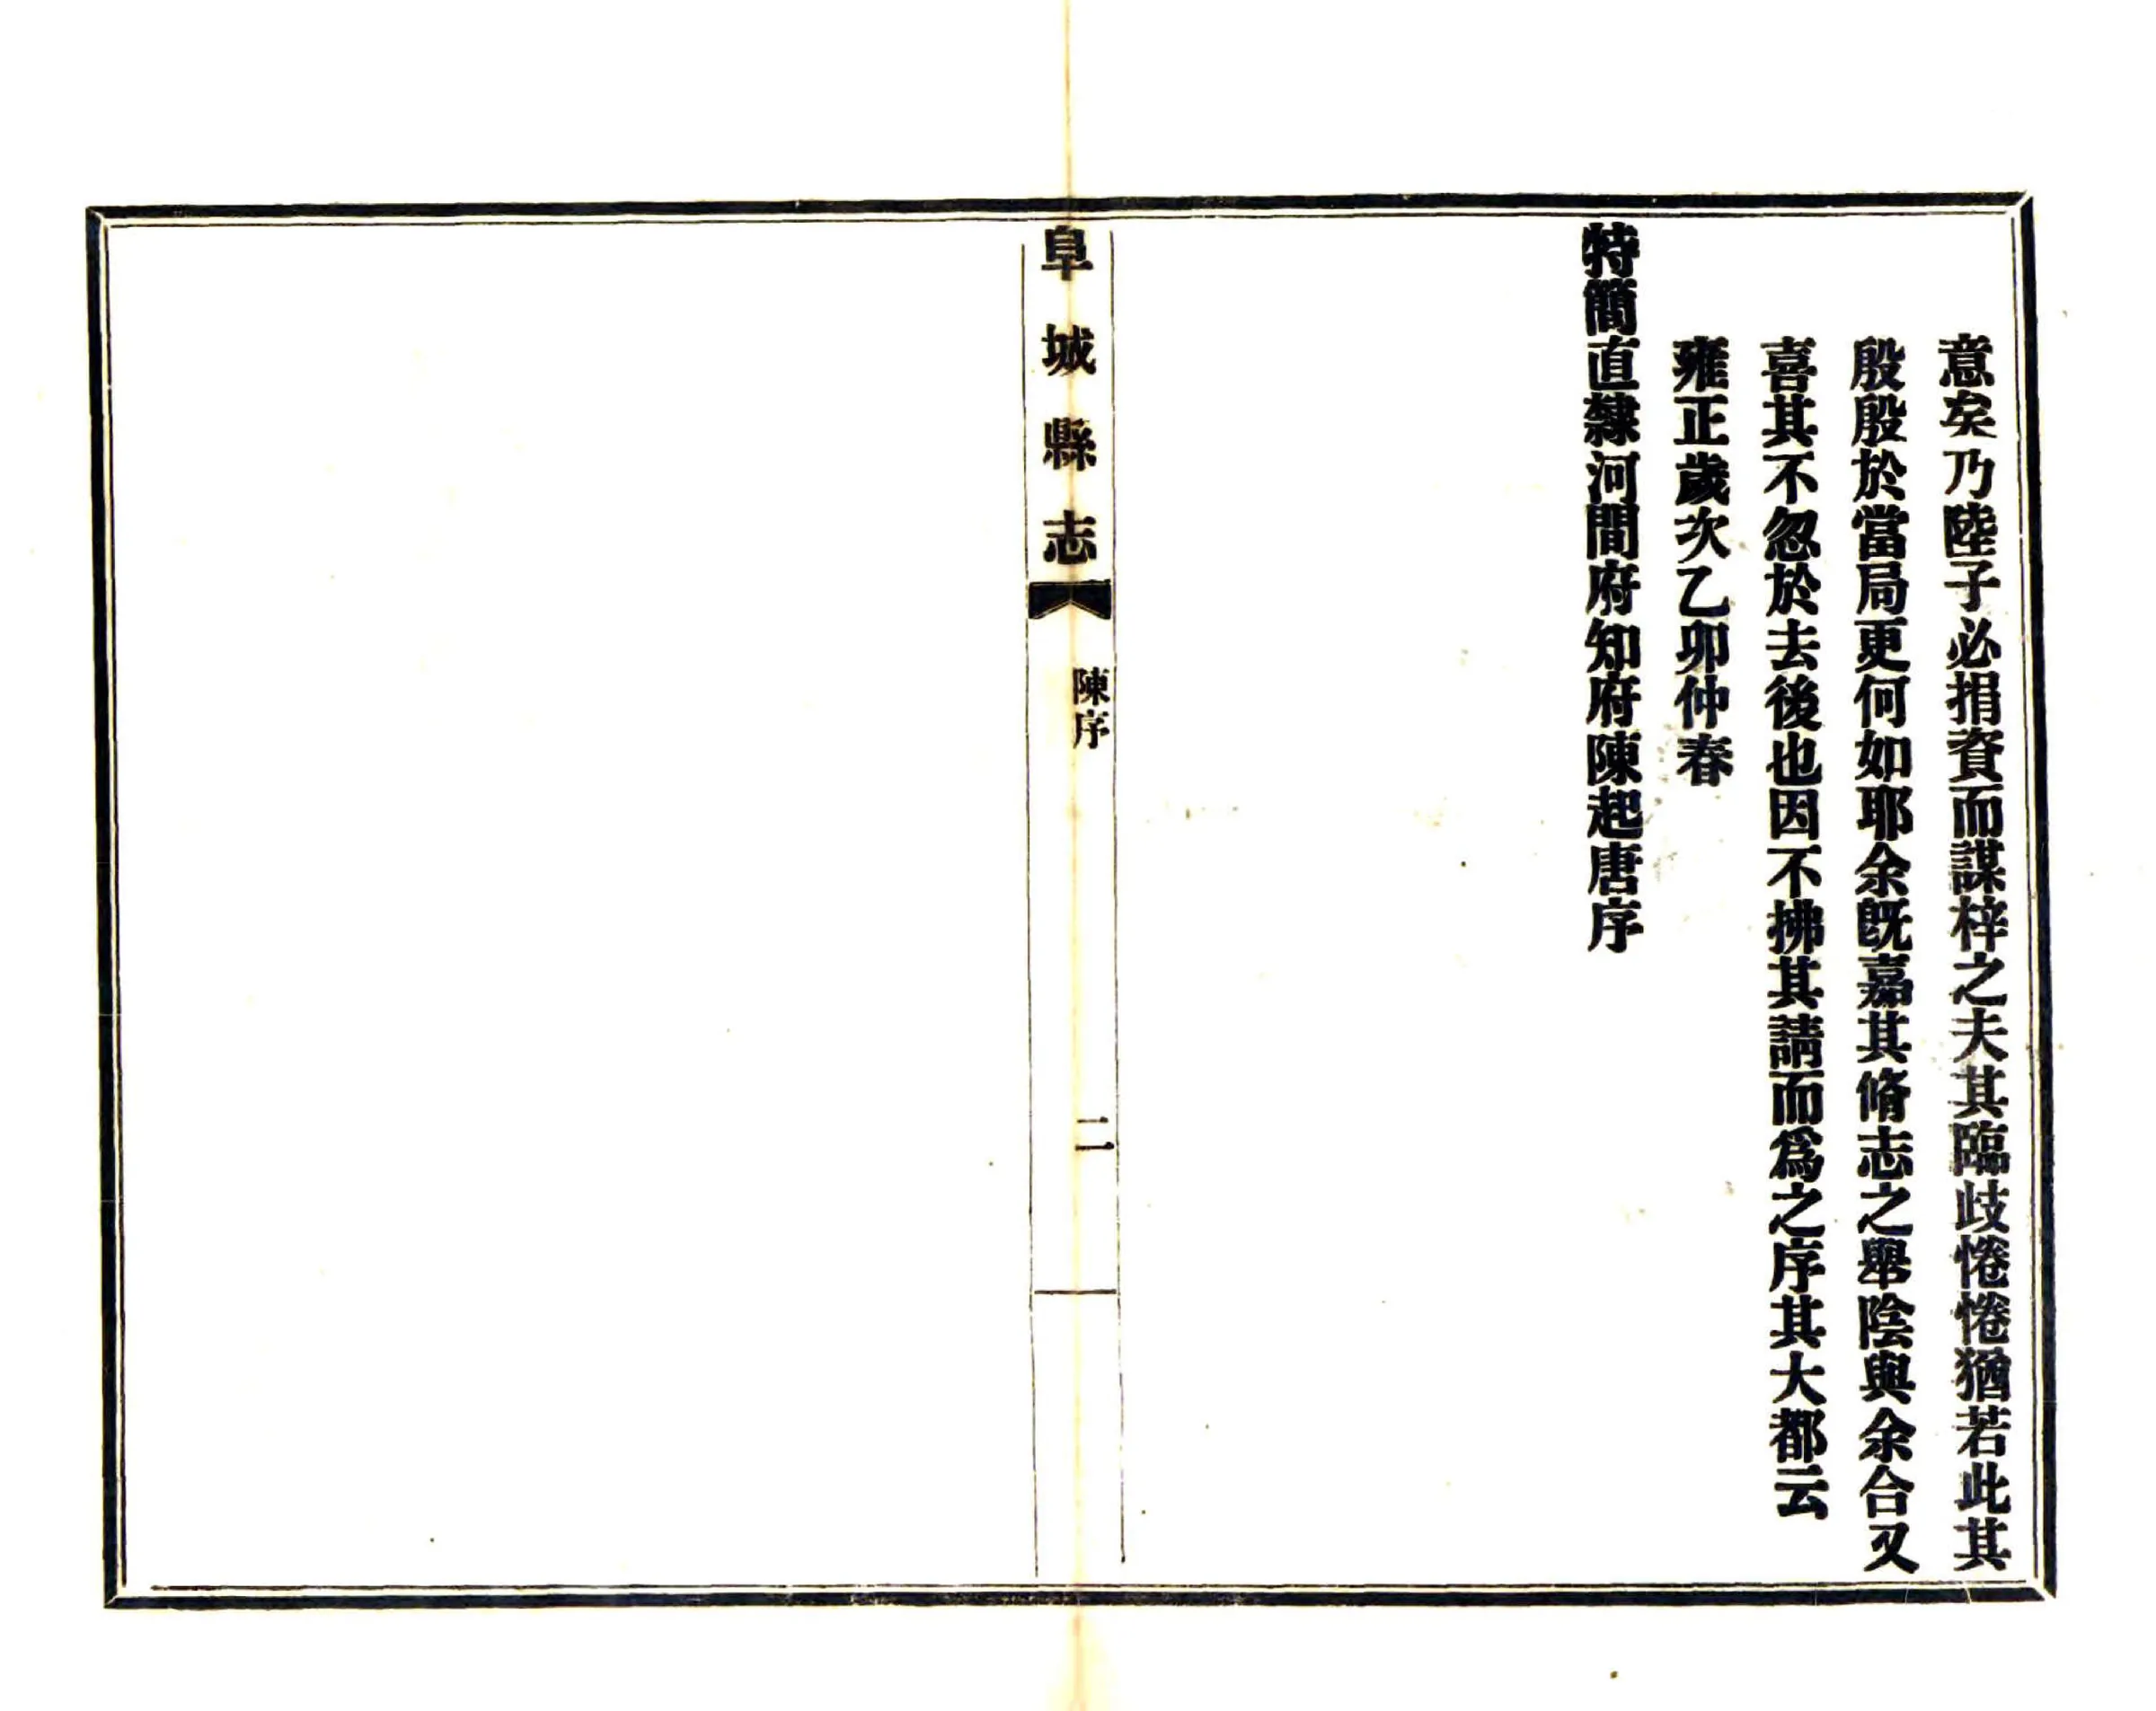 意矣乃陸子必捐資而謀梓之夫其臨歧惓惓猶若此其
殷殷於當局更何如耶余既嘉其脩志之舉陰與余合又
喜其不忽於去後也因不拂其請而爲之序其大都云
雍正歲次乙卯仲春
特簡直隸河間府知府陳起唐序
阜城縣志
陳序
二